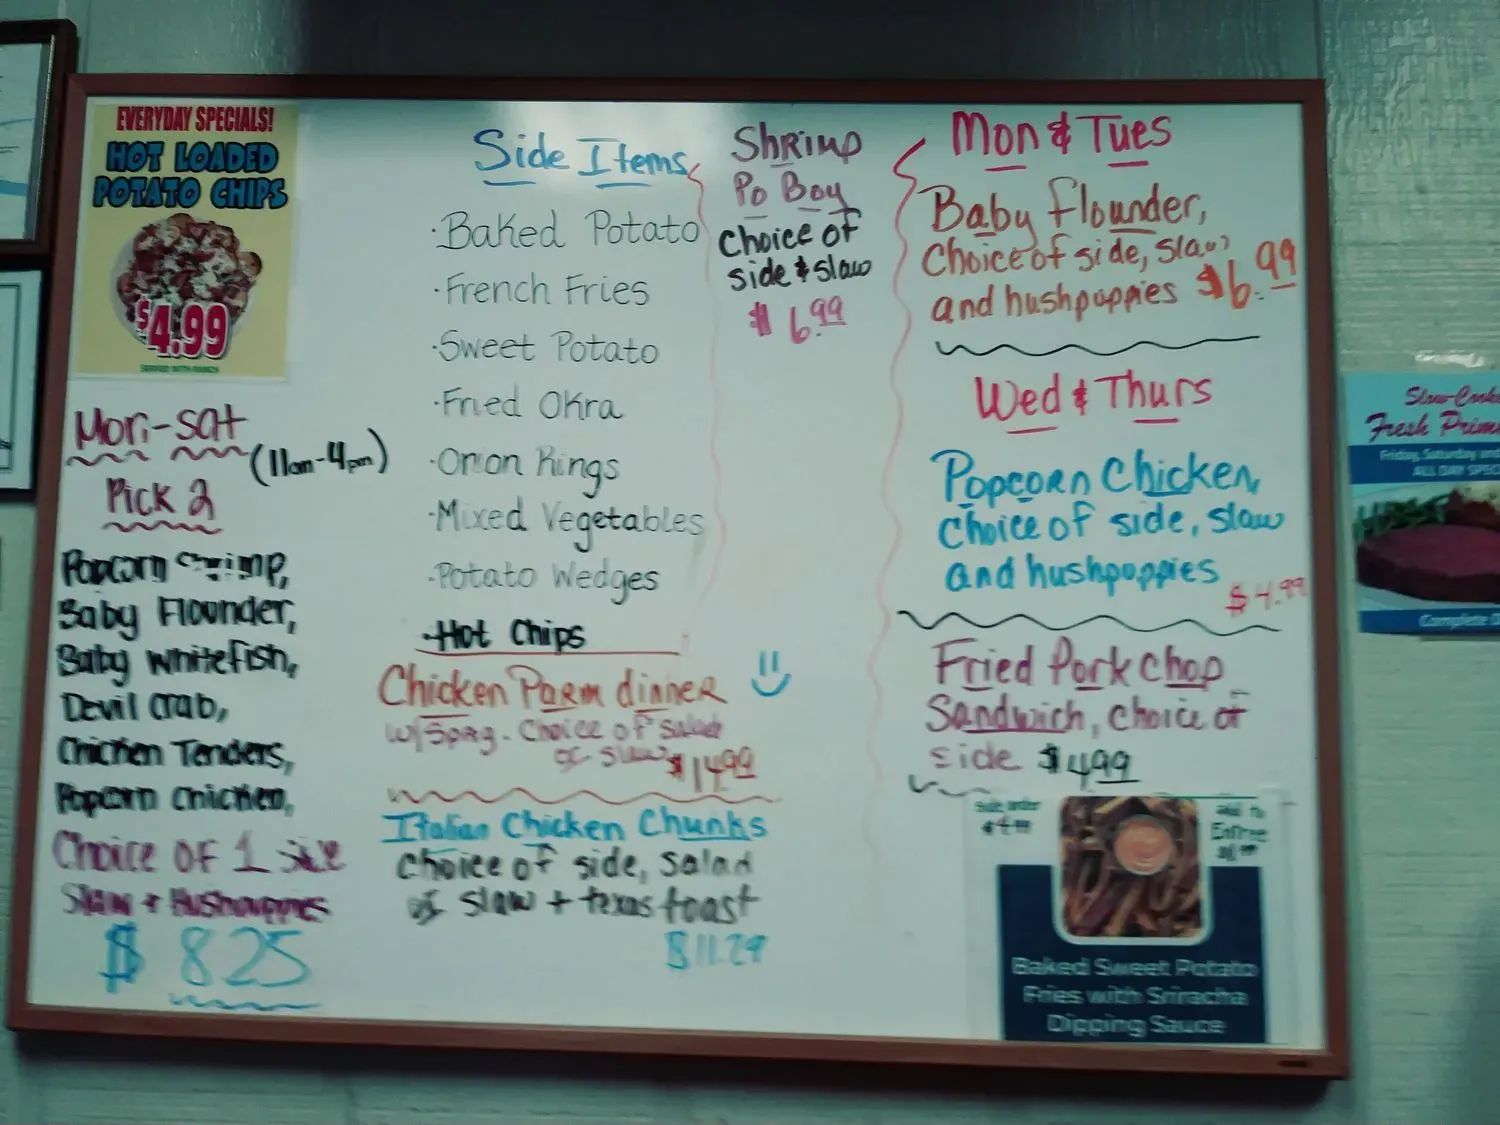 EVERYDAY SPECIALS!
HOT LOADED
POTATO CHIPS
$4.99
SERVED WITH RANCH
Mon-Sat
(11am-4pm)
Pick 2
Popcorn Shrimp,
Baby Flounder,
Baby Whitefish,
Devil Crab,
Chicken Tenders,
Popcorn Chicken,
Choice of 1 side
Slaw + Hushpuppies
$ 8.25
Side Items
·Baked Potato
·French Fries
·Sweet Potato
·Fried Okra
·Onion Rings
·Mixed Vegetables
·Potato Wedges
·Hot Chips
Chicken Parm dinner
w/Spag. Choice of salad
or slaw $14.99
Italian Chicken Chunks
Choice of side, salad
or slaw + texas toast
$11.29
Shrimp
Po Boy
Choice of
side & slaw
$ 6.99
Mon & Tues
Baby Flounder,
Choice of side, slaw
and hushpuppies $6.99
Wed & Thurs
Popcorn Chicken,
Choice of side, slaw
and hushpuppies
$4.99
Fried Pork Chop
Sandwich, choice of
side $4.99
Side order
$4.99
add to
Entree
Baked Sweet Potato
Fries with Sriracha
Dipping Sauce
Fresh
Friday, Saturday and
ALL DAY
Complete